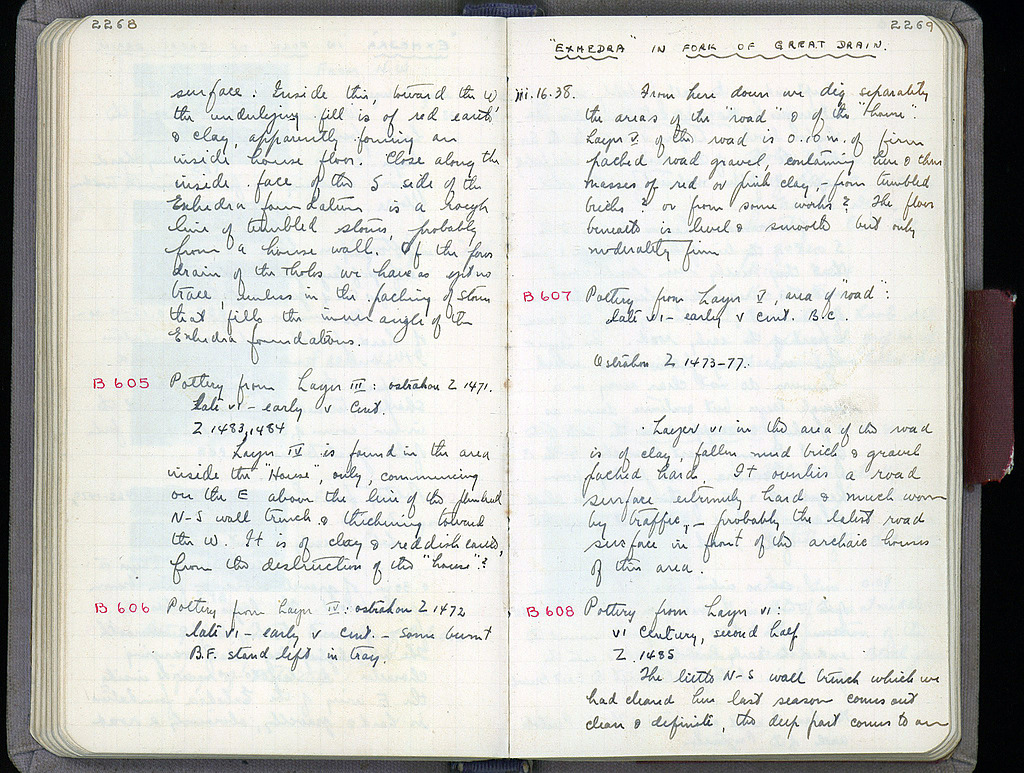 2268
surface. Inside this, toward the W
the underlying fill is of red earth
& clay, apparently forming an
inside house floor. Close along the
inside face of the S side of the
Exhedra foundation is a rough
line of tumbled stones, probably
from a house wall. Of the
drain of the tholos we have as yet no
trace, unless in the packing of stones
that fills the inner angle of the
Exhedra foundations.
B 605 Pottery from Layer III: ostrakon Z 1471.
late VI - early V cent.
Z 1483, 1484
Layer IV is found in the area
inside the "House", only, commencing
on the E above the line of the
N-S wall trench & thickening toward
the W. It is of clay & reddish earth,
from the destruction of the "house"?
B 606 Pottery from Layer IV: ostrakon Z 1472
late VI - early V cent. - some burnt
B.F. stand left in tray.
2269
"EXHEDRA" IN FORK OF GREAT DRAIN.
iii.16.38. From here down we dig separately
the areas of the "road" & of the "house".
Layer V of the road is 0.10 m. of firm
packed road gravel, containing here & there
masses of red or pink clay, - from tumbled
bricks? or from some works? The floor
beneath is level & smooth but only
moderately firm
B 607 Pottery from Layer V, area of "road":
late VI - early V cent. B.C.
Ostrakon Z 1473-77.
Layer VI in the area of the road
is of clay, fallen mud brick & gravel
packed hard. It overlies a road
surface extremely hard & much worn
by traffic, - probably the latest road
surface in front of the archaic houses
of this area.
B 608 Pottery from Layer VI:
VI century, second half
Z 1485
The little N-S wall trench which we
had cleared here last season comes out
clean & definite, the deep part comes to an